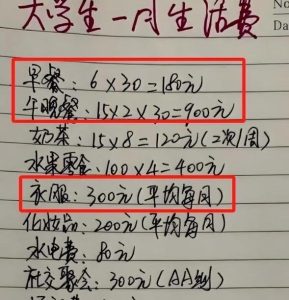 大学生一月生活费
No
Da
早餐：6×30=180元
午晚餐：15×2×30=900元
奶茶：15×8=120元(2次1周)
水果零食：100×4=400元
衣服：300元(平均每月)
化妆品：200元(平均每月)
水电费：80元
社交聚会：300元(AA制)